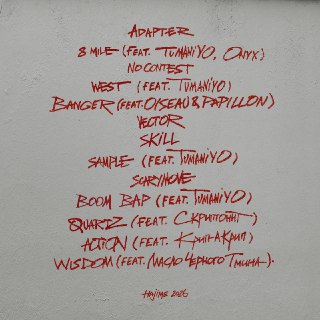 ADAPTER
8 MILE (FEAT. TUMANIYO, ONYX)
NO CONTEST
WEST (FEAT. TUMANIYO)
BANGER (FEAT. OISEAU & PAPILLON)
VECTOR
SKILL
SAMPLE (FEAT. TUMANIYO)
SCARYMOVE
BOOM BAP (FEAT. TUMANIYO)
QUARTZ (FEAT. СКРИПТОНИТ)
ACTION (FEAT. КРИП-А-КРИП)
WISDOM (FEAT. МАСЛО ЧЁРНОГО ТМИНА).
HAJIME 2026